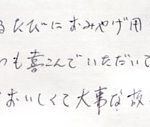 るたびにおみやげ用
つも喜こんでいただいて
おいしくて大事な故